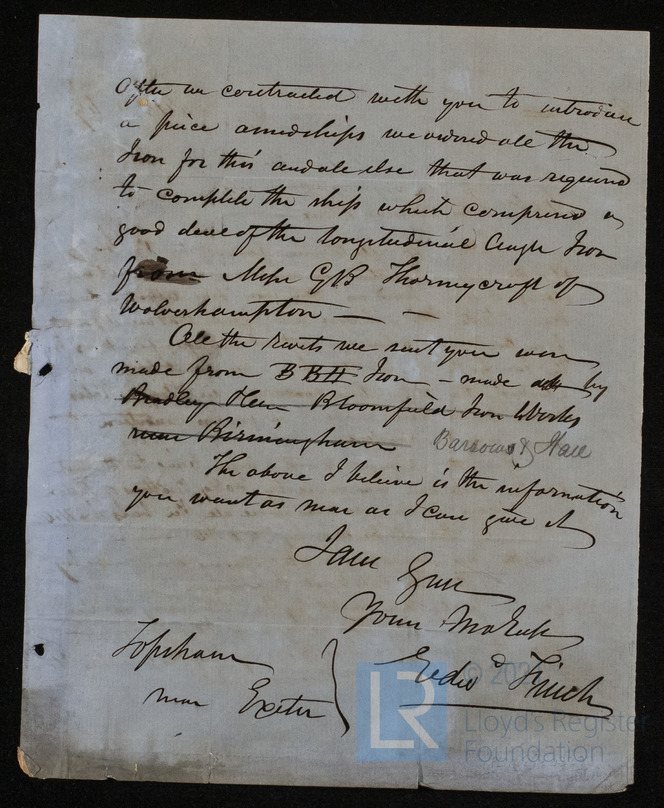 After we contracted with you to introduce
a piece amidships we ordered all the
Iron for this and all else that was required
to complete the ship which comprised a
good deal of the longitudinal Angle Iron
from Messr GB Thorneycroft of
Wolverhampton — —
All the Rivets we sent you were
made from B BBH Iron – made by
Bradley Bloomfield Iron Works
near Birmingham Barrows & Hall
The above I believe is the information
you want as near as I can give it
I am Gen
Your Mo Obt
Edwd Finch
Topsham
near Exeter
LR
© 202
Lloyd's Register
Foundation